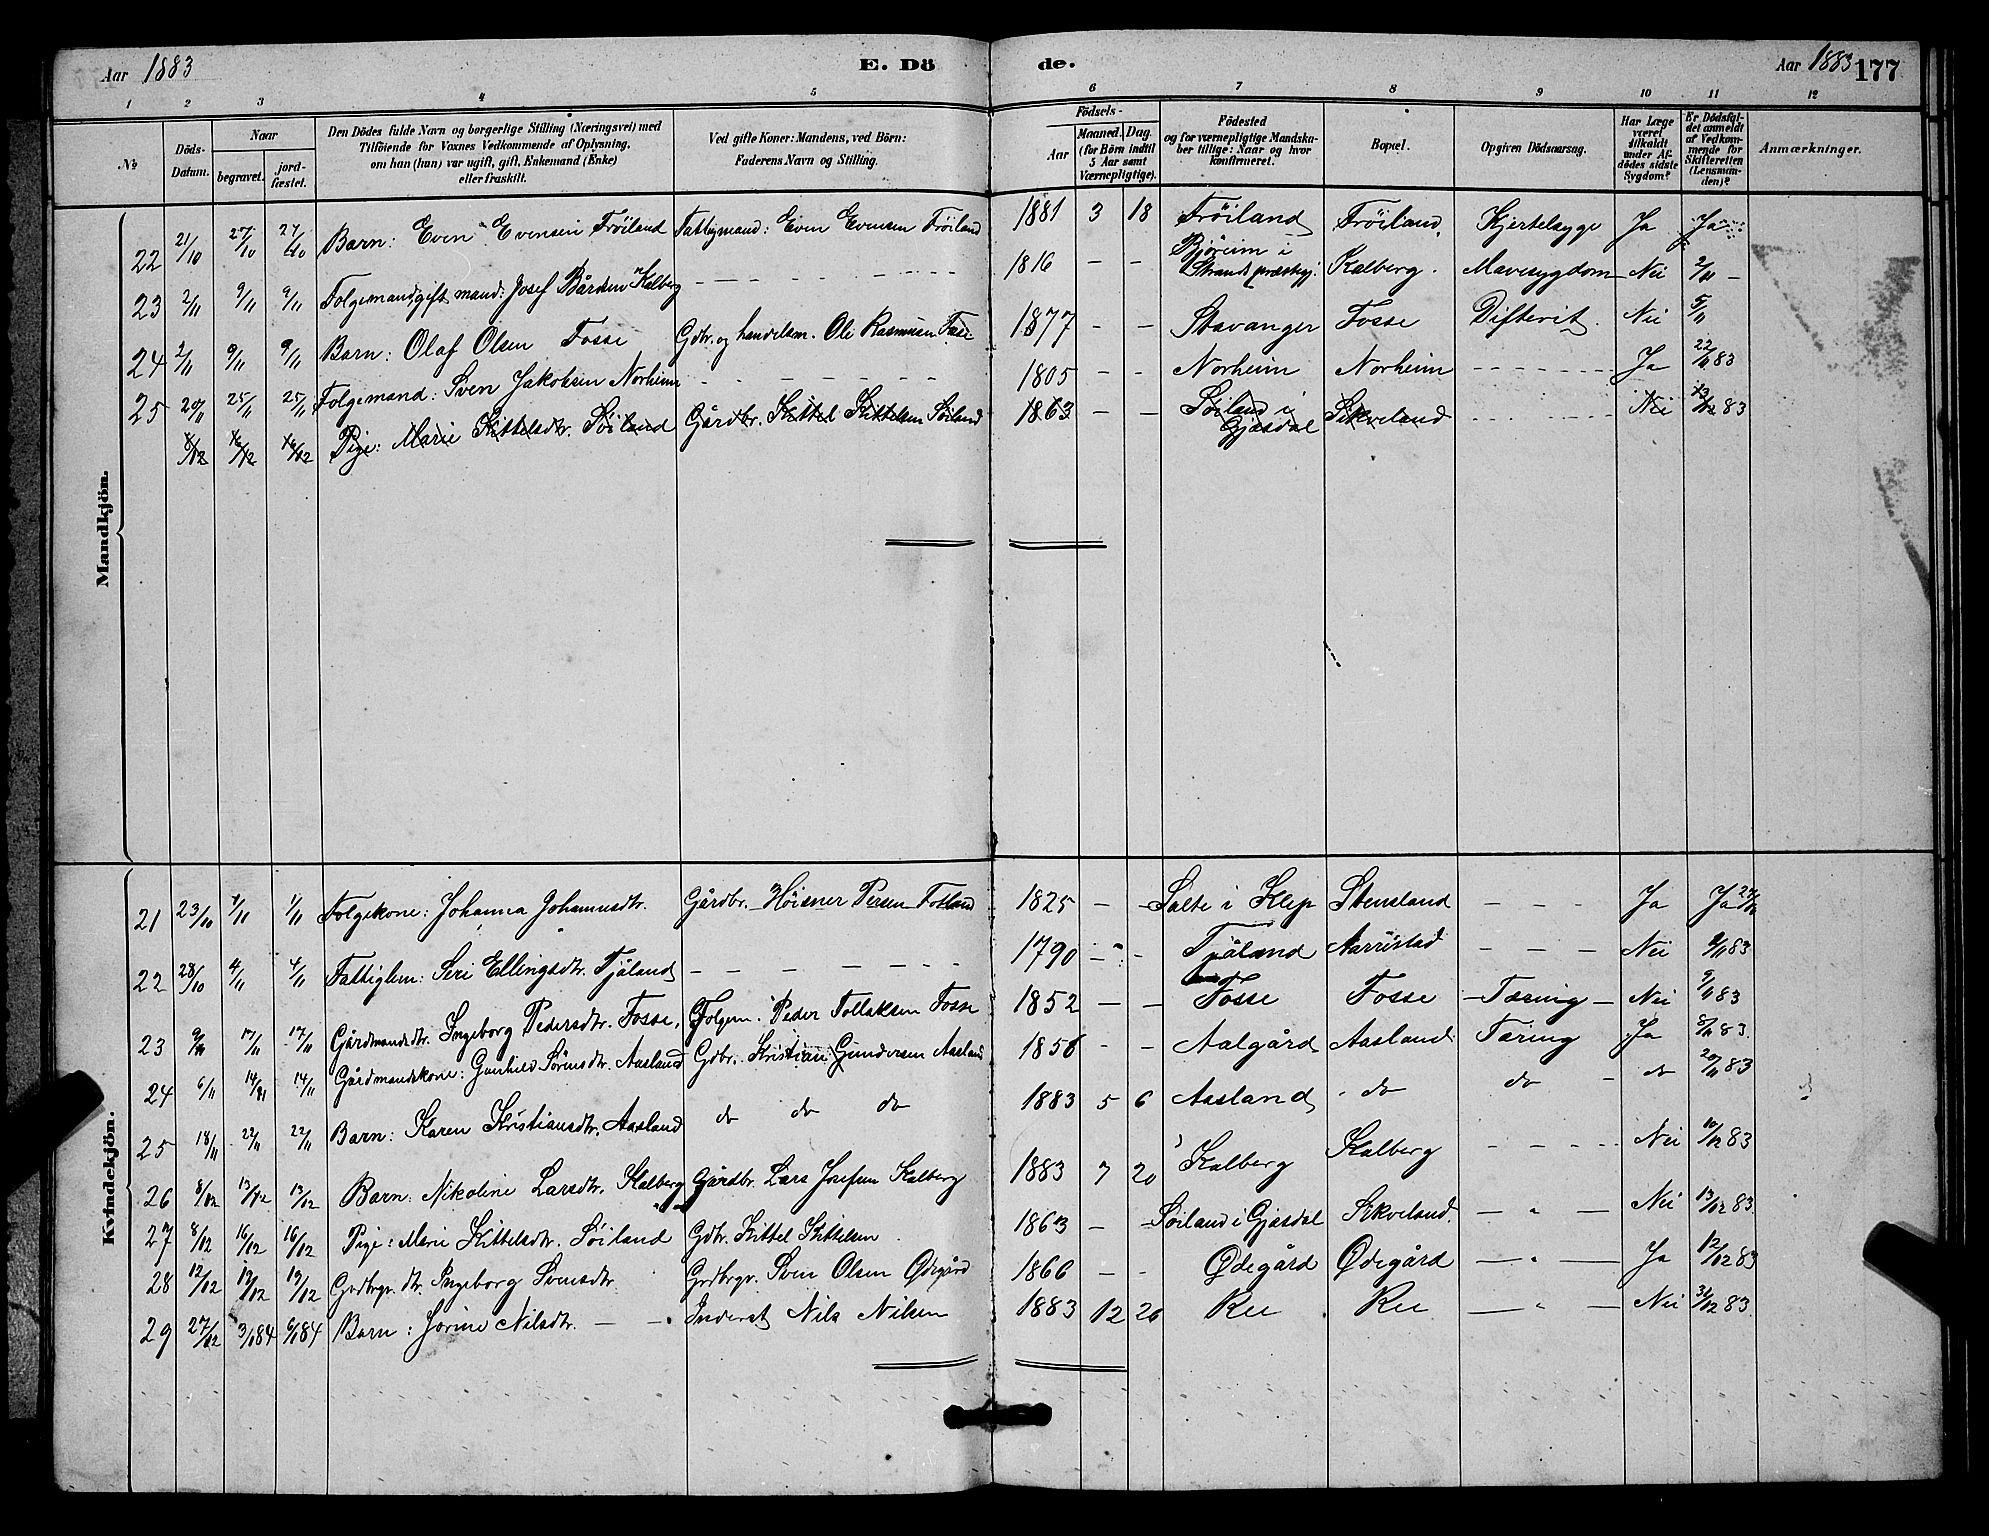 Aar 1883 E. Dö de. Aar 1883 177
1 2 3 4 5 6 7 8 9 10 11 12
No
Döds-Datum.
Naar
begravet.
jord-fæstet.
Den Dödes fulde Navn og borgerlige Stilling (Næringsvei) med
Tilföiende for Voxnes Vedkommende af Oplysning,
om han (hun) var ugift, gift, Enkemand (Enke)
eller fraskilt.
Ved gifte Koner: Mandens, ved Börn:
Faderens Navn og Stilling.
Födsels-
Aar
Maaned. Dag.
(for Börn indtil
5 Aar samt
Værnepligtige).
Födested
og for værnepligtige Mandska-
ber tillige: Naar og hvor
konfirmeret.
Bopæl.
Opgiven Dödsaarsag.
Har Læge
været
tilkaldt
under Af-
dödes sidste
Sygdom?
Er Dödsfal-
det anmeldt
af Vedkom-
mende for
Skifteretten
(Lensman-
den)?
Anmærkninger.
Mandkjön.
22 21/10 27/10 27/10 Barn: Even Evensen Fröiland Fattigmand: Even Evensen Fröiland 1881 3 18 Fröiland Fröiland. Kjertelsyge Ja Ja
23 2/11 9/11 9/11 Folgemand gift mand: Josef Bårdsen Kalberg - - - 1816 - - Björeim i Strands præstegj. Kalberg. Mavesygdom Nei 2/11 -
24 2/11 9/11 9/11 Barn: Olaf Olsen Fosse Gdbr. og handelsm. Ole Rasmusen Fosse 1877 - - Stavanger Fosse Difterit. Nei 5/11
25 20/11 25/11 25/11 Folgemand: Sven Jakobsen Norheim - - - 1805 - - Norheim Norheim - - - Ja 22/11 83
8/12 16/12 16/12 Pige: Marie Kittelsdtr. Söiland Gårdbr. Kittel Kittelsen Söiland 1863 - - Söiland i Gjæsdal Sikveland - - - Nei 13/12 83
Kvindekjön.
21 23/10 1/11 1/11 Folgekone: Johanna Johannesdtr. Gårdbr. Höisner Persen Fotland 1825 - - Salte i Klep Stensland - - - Ja Ja
22 28/10 4/11 4/11 Fattiglem: Seri Ellingsdtr. Tjåland - - - 1790 - - Tjåland Aarrestad - - - Nei 9/11 83
23 9/11 17/11 17/11 Gårdmandsdtr. Ingeborg Pedersdtr. Fosse. Folgem. Peder Tollaksen Fosse 1852 - - Fosse Fosse - Tæring - Nei 9/11 83
24 6/11 14/11 14/11 Gårdmandskone: Gunhild Sörensdtr. Aasland Gdbr. Kristian Gundersen Aasland 1858 - - Aalgård Aasland Tæring Ja 8/11 83.
25 18/11 22/11 22/11 Barn: Karen Kristiansdtr. Aasland do do do 1883 5 6 Aasland do do - do 20/11 83
26 8/12 13/12 13/12 Barn: Nikoline Larsdtr. Kalberg Gårdbr. Lars Josefsen Kalberg 1883 7 20 Kalberg Kalberg - - - Nei 10/12 83
27 8/12 16/12 16/12 Pige: Marie Kittelsdtr. Söiland Gdbr. Kittel Kittelsen 1863 - - Söiland i Gjæsdal Sikveland. - " - Nei 13/12 83.
28 12/12 19/12 19/12 Grdbrgr. dtr. Ingeborg Svensdtr. Grdbrgr. Sven Olsen Ødegård 1866 - - Ødegård Ødegård - " - Ja 12/12 83
29 27/12 3/1 84 6/1 84 Barn: Jorine Nilsdtr. - - Inderst Nils Nilsen 1883 12 26 Ree Ree - " - Nei 31/12 83.